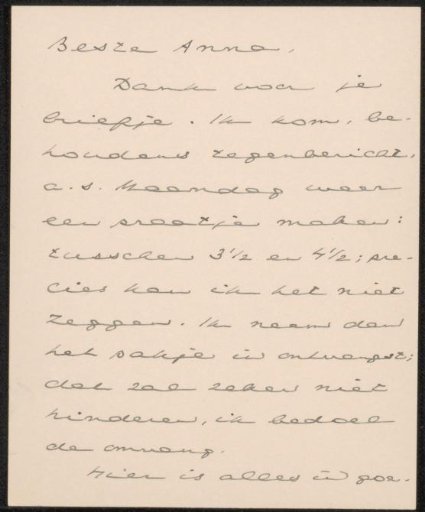 Beste Anna,
Dank voor je
briefje. Ik kom, be-
houdens tegenbericht,
a.s. Maandag weer
een praatje maken:
tusschen 3½ en 4½; pre-
cies kan ik het niet
zeggen. Ik neem dan
het pakje in ontvangst;
dat zal zeker niet
hinderen, ik bedoel
de omvang.
Hier is alles in goe-